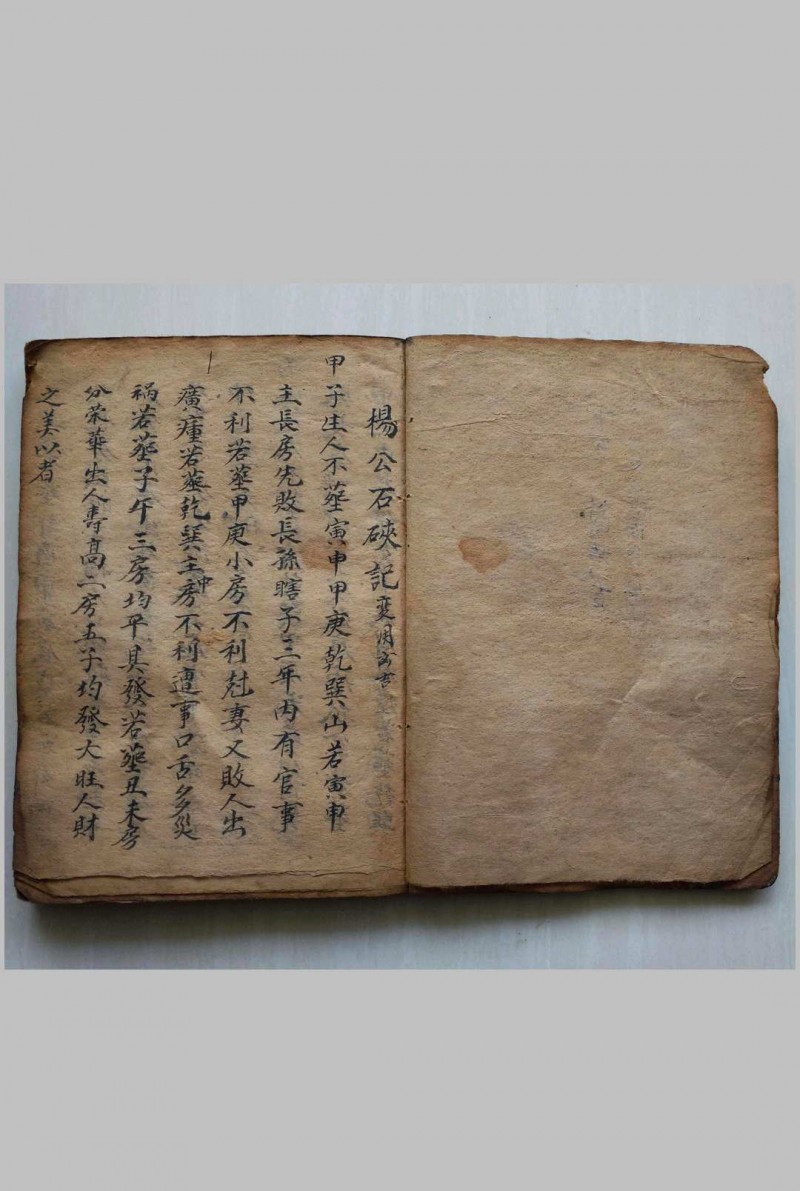 楊公石硤記 変用
甲子生人不葬寅申甲庚乾巽山若寅申
主長房先敗長孫瞎子三年内有官事
不利若葬甲庚小房不利尅妻又敗人出
癀瘇若葬乾巽主中房不利遭事口舌多災
禍若葬子午三房均平具發若葬丑未房
分荣華出人壽高二房五子均發大旺人財
之美以者